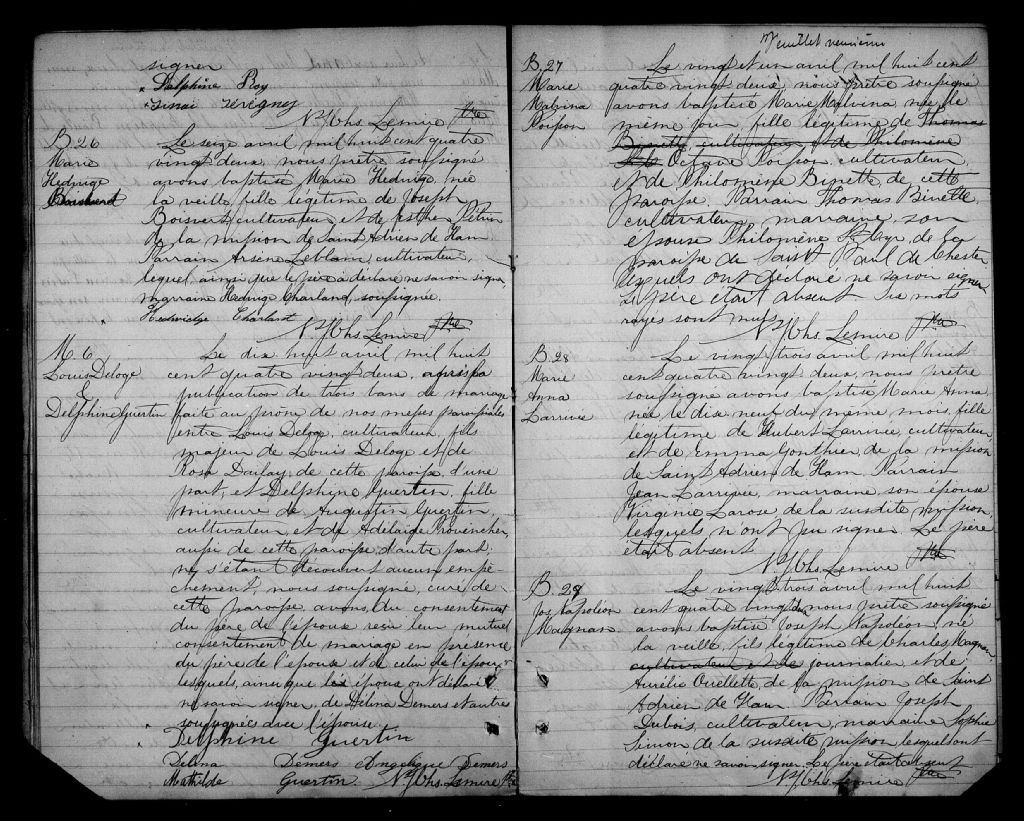 signer
Delphine Roy
Sinai Sévégny
N. Chs. Lemire Ptre
B. 26
Marie
Hedwige
Boisvert
Le seize avril mil huit cent quatre
vingt deux, nous prêtre soussigné
avons baptisé Marie Hedwige, née
la veille, fille légitime de Joseph
Boisvert, cultivateur, et de Esther Pétrin
de la mission de Saint Adrien de Ham.
Parrain Arsène Leblanc, cultivateur,
lequel, ainsi que le père a déclaré ne savoir signer,
marraine Hedwige Charland, soussignée.
Hedwidge Charland
N. Chs. Lemire Ptre
M. 6
Louis Deloge
&
Delphine Guertin
Le dix huit avril mil huit
cent quatre vingt deux, après la
publication de trois bans de mariage
faite au prône de nos messes paroissiales
entre Louis Deloge, cultivateur, fils
majeur de Louis Deloge et de
Rose Dailay, de cette paroisse d'une
part, et Delphine Guertin, fille
mineure de Augustin Guertin,
cultivateur, et de Adelaide Provencher,
aussi de cette paroisse d'autre part,
ne s'étant découvert aucun empê
chement, nous soussigné, curé de
cette paroisse, avons, du consentement
du père de l'épouse, reçu leur mutuel
consentement de mariage en présence
du père de l'épouse et de celui de l'époux
lesquels, ainsi que les époux ont déclaré
ne savoir signer, de Délina Demers et autres
soussignées avec l'épouse.
Delphine Guertin
Delina Demers Angelique Demers
Mathilde Guertin. N. Chs. Lemire Ptre
feuillet neuvième
B. 27
Marie
Malvina
Poisson
Le vingt et un avril mil huit cent
quatre vingt deux, nous prêtre soussigné
avons baptisé Marie Malvina née le
même jour, fille légitime de Thomas
Binette, cultivateur et de Philomène
Octave Poisson, cultivateur,
et de Philomène Binette, de cette
paroisse. Parrain Thomas Binette,
cultivateur, marraine, son
épouse Philomène St Cyr, de la
paroisse de Saint Paul de Chester
lesquels ont déclaré ne savoir signer
Le père était absent. Six mots
rayés sont nuls.
N. Chs. Lemire Ptre
B. 28
Marie
Anna
Larrivée
Le vingt trois avril mil huit
cent quatre vingt deux, nous prêtre
soussigné avons baptisé Marie Anna
née le dix neuf du même mois, fille
légitime de Hubert Larrivée, cultivateur
et de Emma Gonthier, de la mission
de Saint Adrien de Ham. Parrain
Jean Larrivée, marraine, son épouse
Virginie Larose de la susdite mission,
lesquels n'ont pu signer. Le père
était absent.
N. Chs. Lemire Ptre
B. 29
Jos. Napoléon
Magnan
Le vingt trois avril mil huit
cent quatre vingt deux nous prêtre soussigné
avons baptisé Joseph Napoléon né
la veille, fils légitime de Charles Magnan,
cultivateur et de journalier et de
Aurélie Ouellette, de la mission de Saint
Adrien de Ham. Parrain Joseph
Dubois, cultivateur, marraine Sophie
Simon de la susdite mission, lesquels ont
déclaré ne savoir signer. Le père était absent
N. Chs. Lemire Ptre